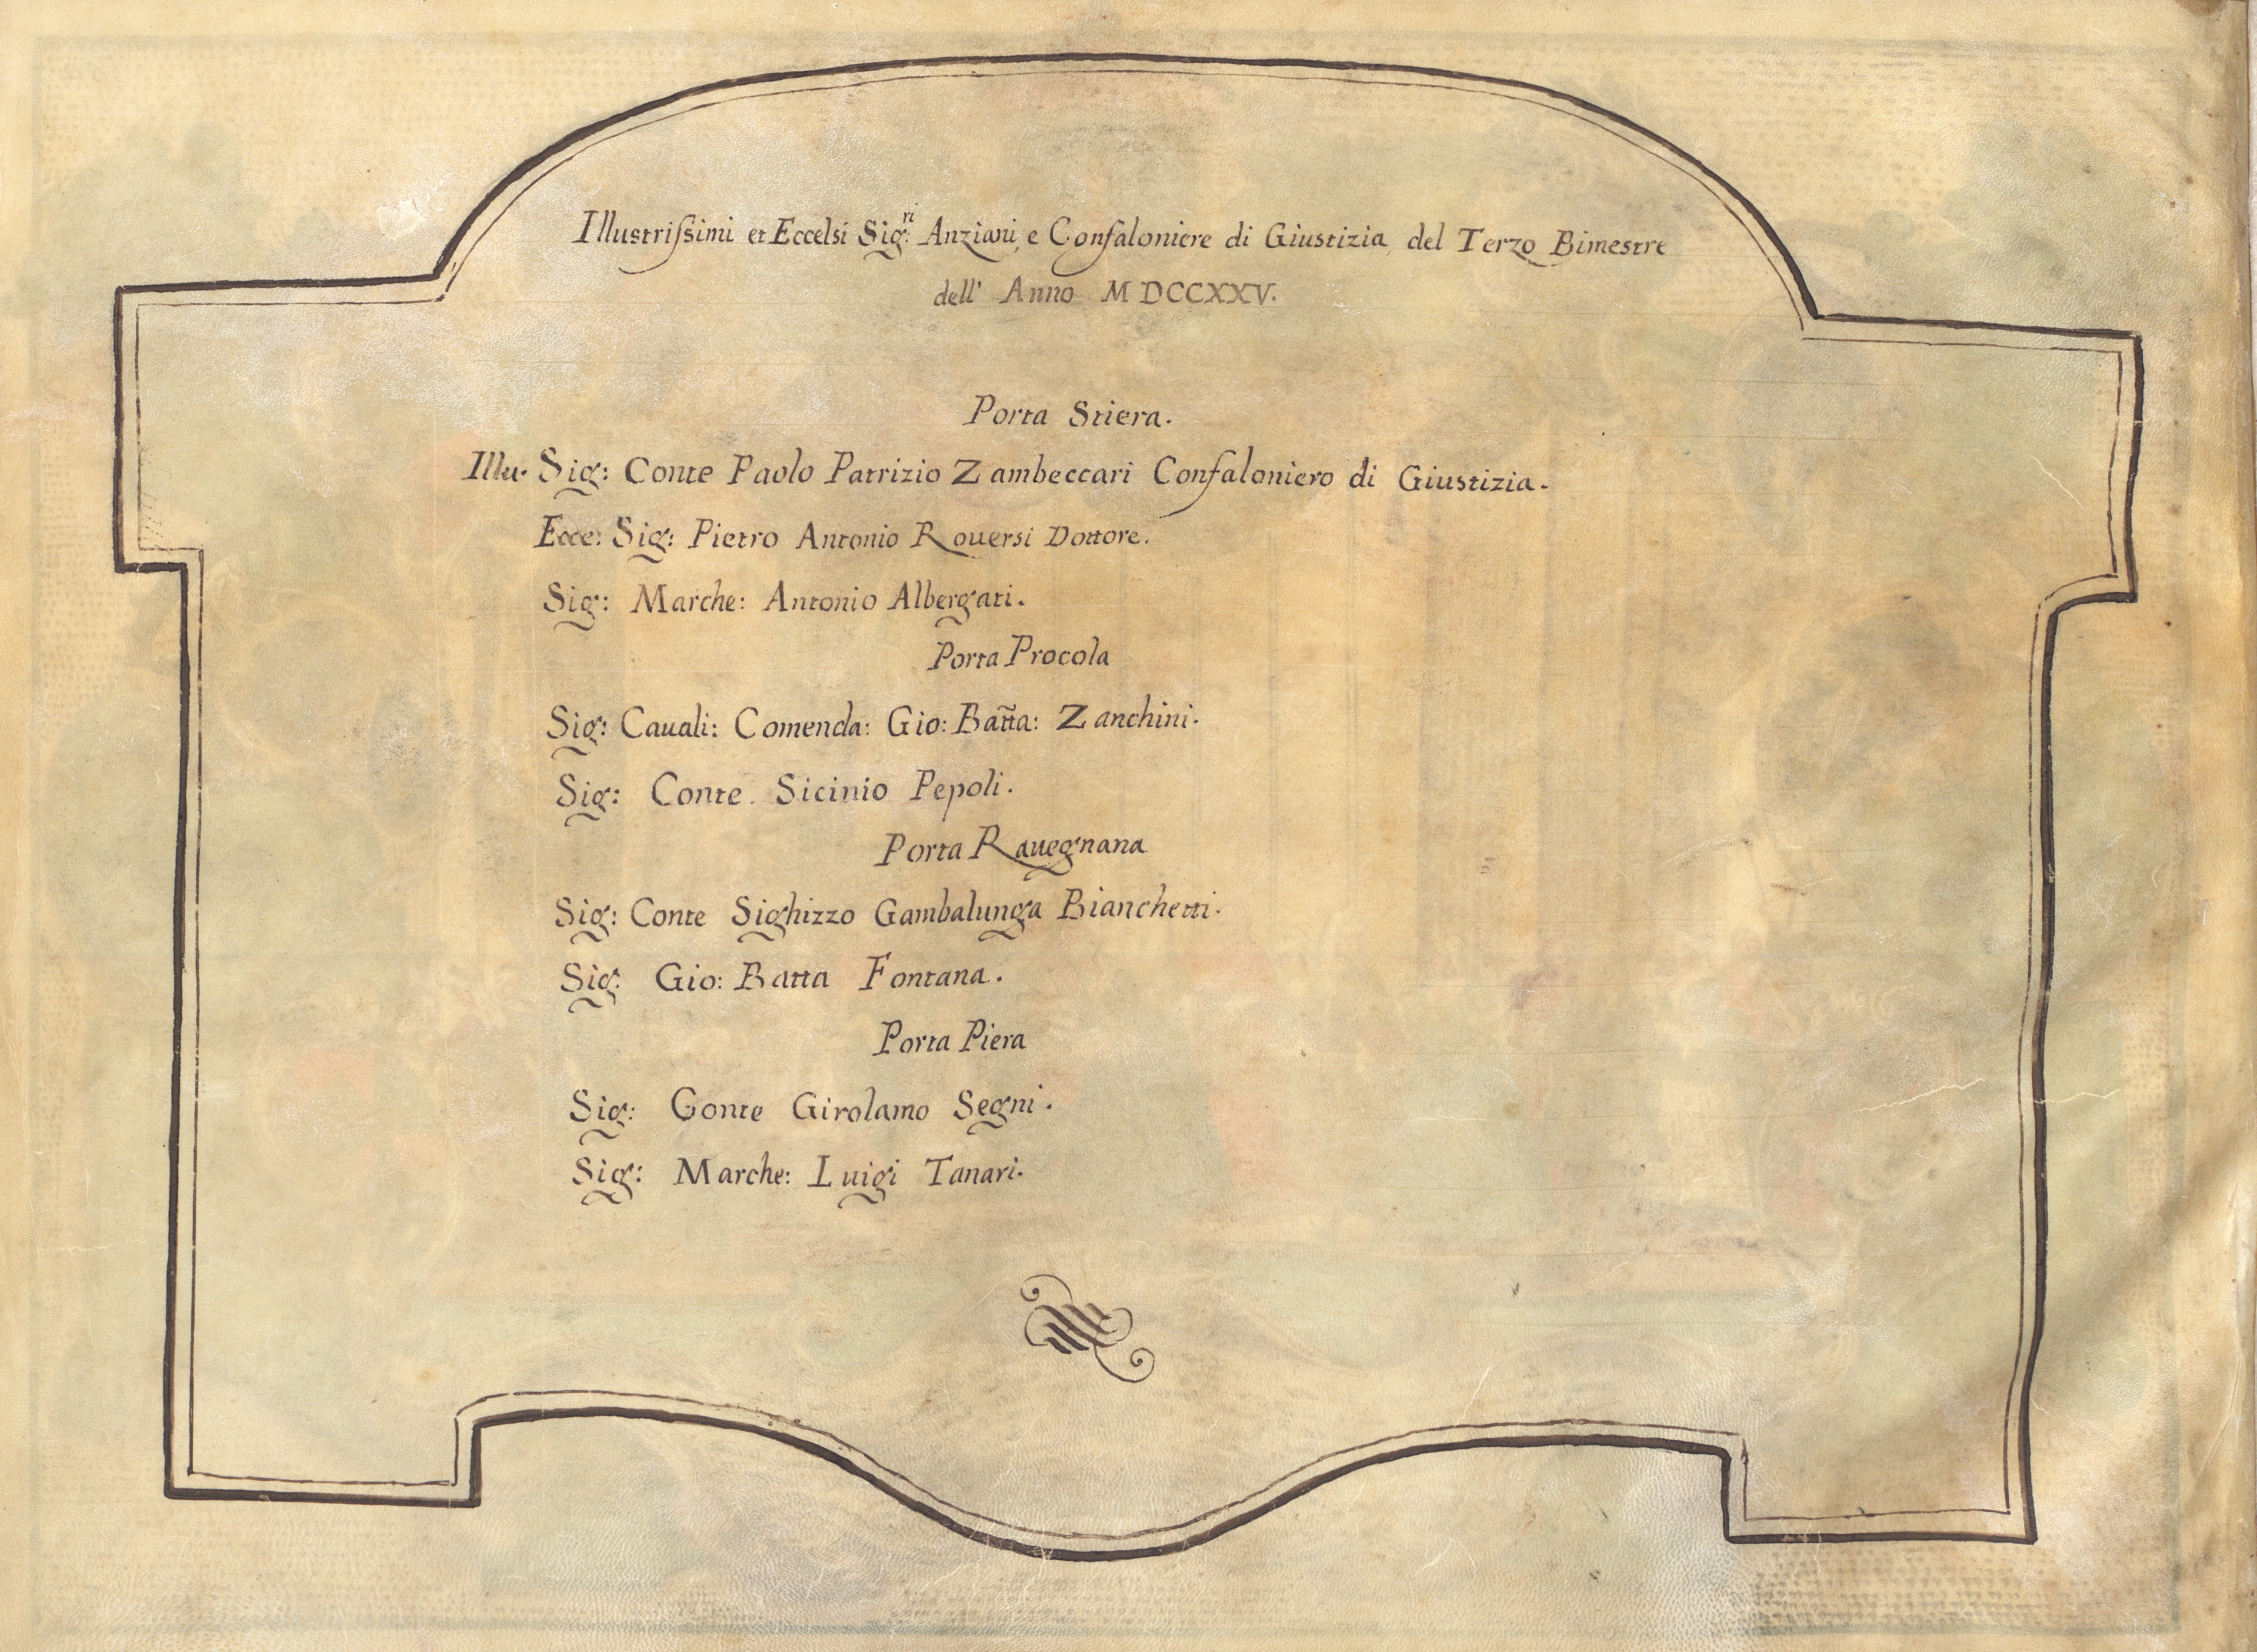 Illustriſsimi et Eccelsi Sig:ri Anziani, e Confaloniere di Giustizia del Terzo Bimestre
dell' Anno MDCCXXV.
Porta Stiera.
Illu. Sig: Conte Paolo Patrizio Zambeccari Confaloniero di Giustizia.
Ecce: Sig: Pietro Antonio Rouersi Dottore.
Sig: Marche: Antonio Albergati.
Porta Procola
Sig: Cauali: Comenda: Gio: Batta: Zanchini.
Sig: Conte Sicinio Pepoli.
Porta Rauegnana
Sig: Conte Sighizzo Gambalunga Bianchetti.
Sig: Gio: Batta Fontana.
Porta Piera
Sig: Conte Girolamo Segni.
Sig: Marche: Luigi Tanari.